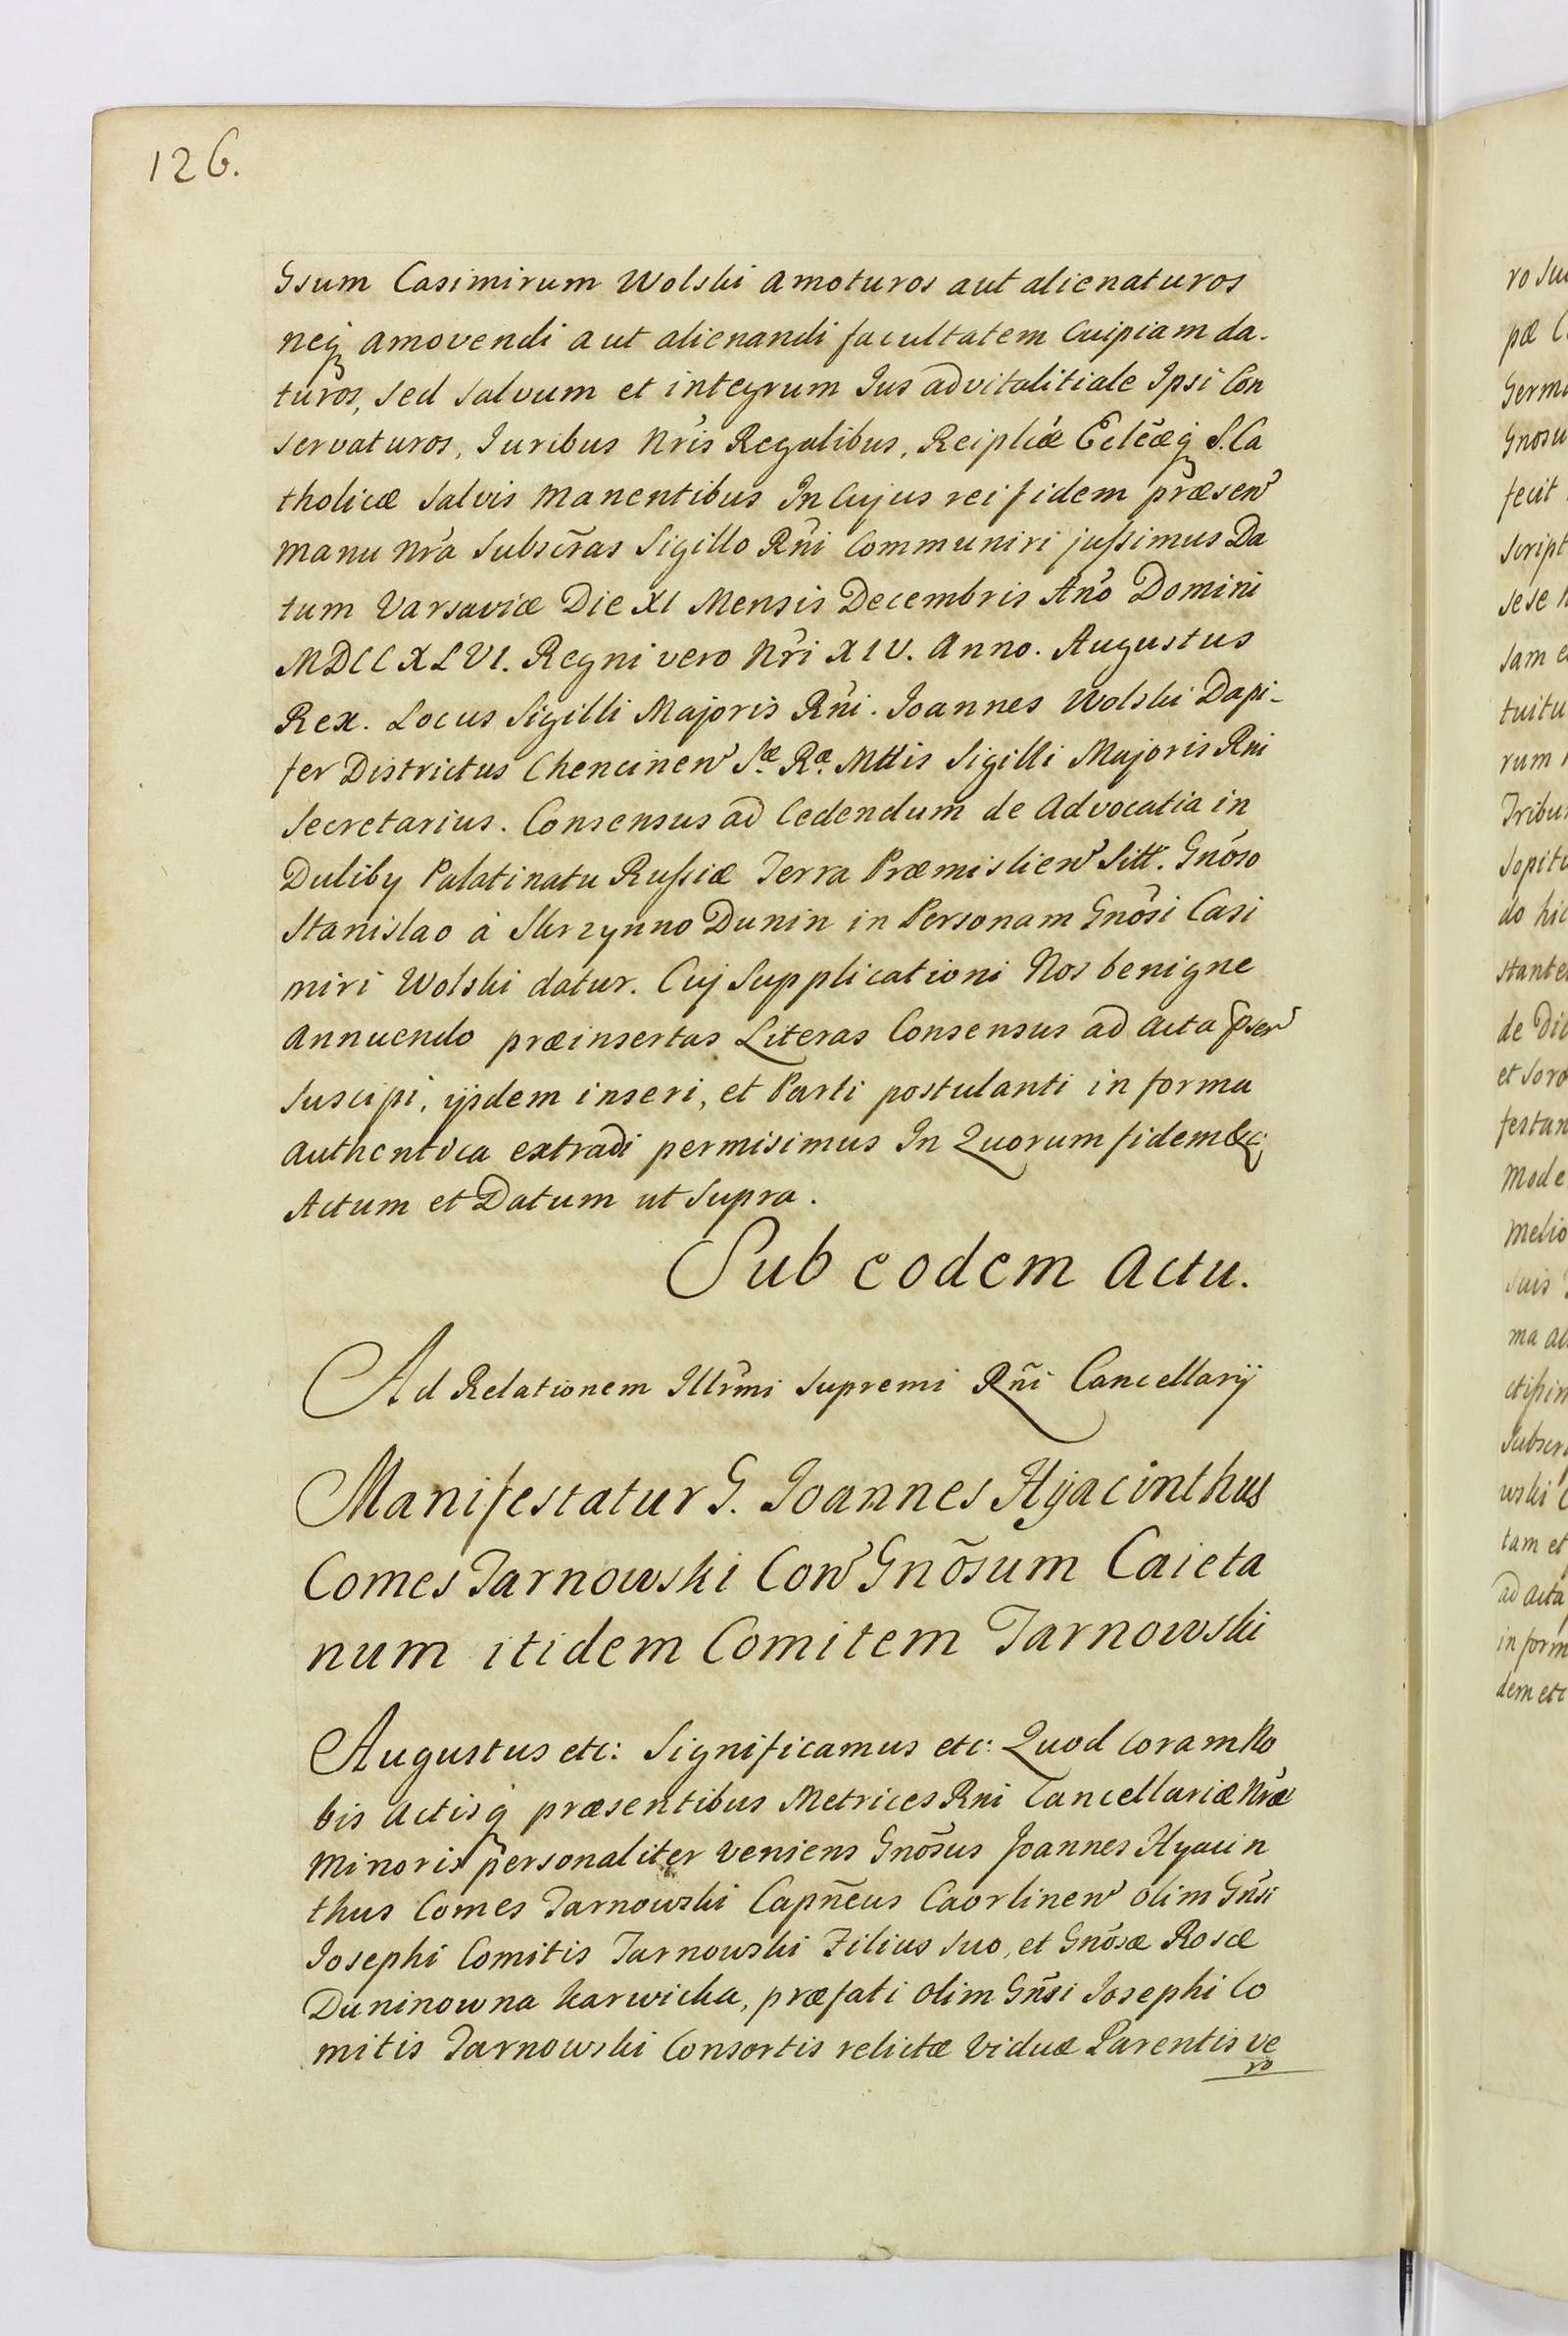 126.
Gsum Casimirum Wolski amoturos aut alienaturos
neq̃ amovendi aut alienandi facultatem Cuipiam da-
turos, sed salvum et integrum Jus advitalitiale Ipsi Con
servaturos, Juribus Nr̃is Regalibus, Reiplicæ Eclẽæq̃ S. Ca
tholicæ salvis manentibus In Cujus rei fidem præsen̄
manu nr̃a subscr̃as Sigillo Rñi Communiri jussimus Da
tum Varsaviæ Die XI Mensis Decembris Año Domini
MDCCXLVI. Regni vero Nr̃i XIV. Anno. Augustus
Rex. Locus Sigilli Majoris Rñi. Joannes Wolski Dapi-
fer Districtus Chencinen̄ Sæ. Ræ. Mttis Sigilli Majoris Rni
Secretarius. Consensus ad Cedendum de Advocatia in
Duliby Palatinatu Russiæ Terra Præmislien̄ Sitt. Gnõso
Stanislao à Skrzynno Dunin in Personam Gnõsi Casi
miri Wolski datur. Cuj Supplicationi Nos benigne
Annuendo præinsertas Literas Consensus ad acta p̃sen̄
suscipi, ijsdem inseri, et Parti postulanti in forma
authentica extradi permisimus In Quorum fidem &c:
Actum et Datum ut Supra.
Sub eodem Actu.
Ad Relationem Illr̃mi Supremi Rñi Cancellarij
Manifestatur G. Joannes Hyacinthus
Comes Tarnowski Con̄ Gnõsum Caieta
num itidem Comitem Tarnowski
Augustus etc: Significamus etc: Quod Coram No
bis Actisq̃ præsentibus Metrices Rni Cancellariæ Nr̃æ
Minoris personaliter veniens Gnõsus Joannes Hyacin
thus Comes Tarnowski Capñeus Caorlinen̄ olim Gñsi
Josephi Comitis Tarnowski Filius suo, et Gnõsæ Rosæ
Duninowna Karwicka, præfati olim Gñsi Josephi Co
mitis Tarnowski Consortis relictæ Viduæ Parentis ve
ro